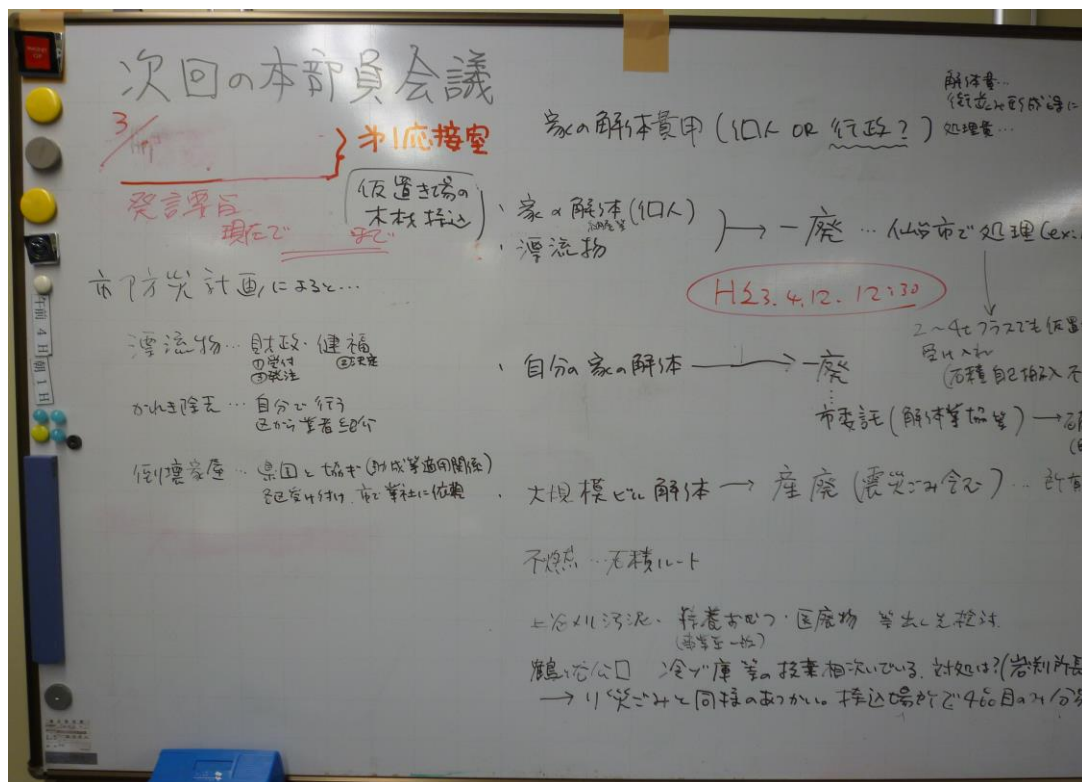 次回の本部員会議
3/
第1応接室
発言要旨
現在で
まで
仮置き場の
木材搬入
市防災計画によると…
漂流物…財政・健福
①受付
②決定
③発注
がれき除去…自分で行う
区から業者紹介
倒壊家屋…県国と協ギ(助成等適用関係)
各区受け付け、市で業社に依頼
午前 4H 朝 1H
家の解体費用(個人 OR 行政?)
解体費…
街並み形成課に
処理費…
・家の解体(個人)
・漂流物
→一廃…仙台市で処理(ex.
H23.4.12. 12:30
2~4tプラスでも仮置
受け入れ
・自分の家の解体→一廃
市委託(解体業協等)→
・大規模ビル解体→産廃(震災ごみ含む)…所有
不燃…石積ルート
上谷刈汚泥・
おむつ・医廃物 等出し先検討
鶴ヶ谷公口 冷ゾ庫等の投棄相次いでいる。対処は?(
→り災ごみと同様のあつかい。搬入場所で4品目のみ分